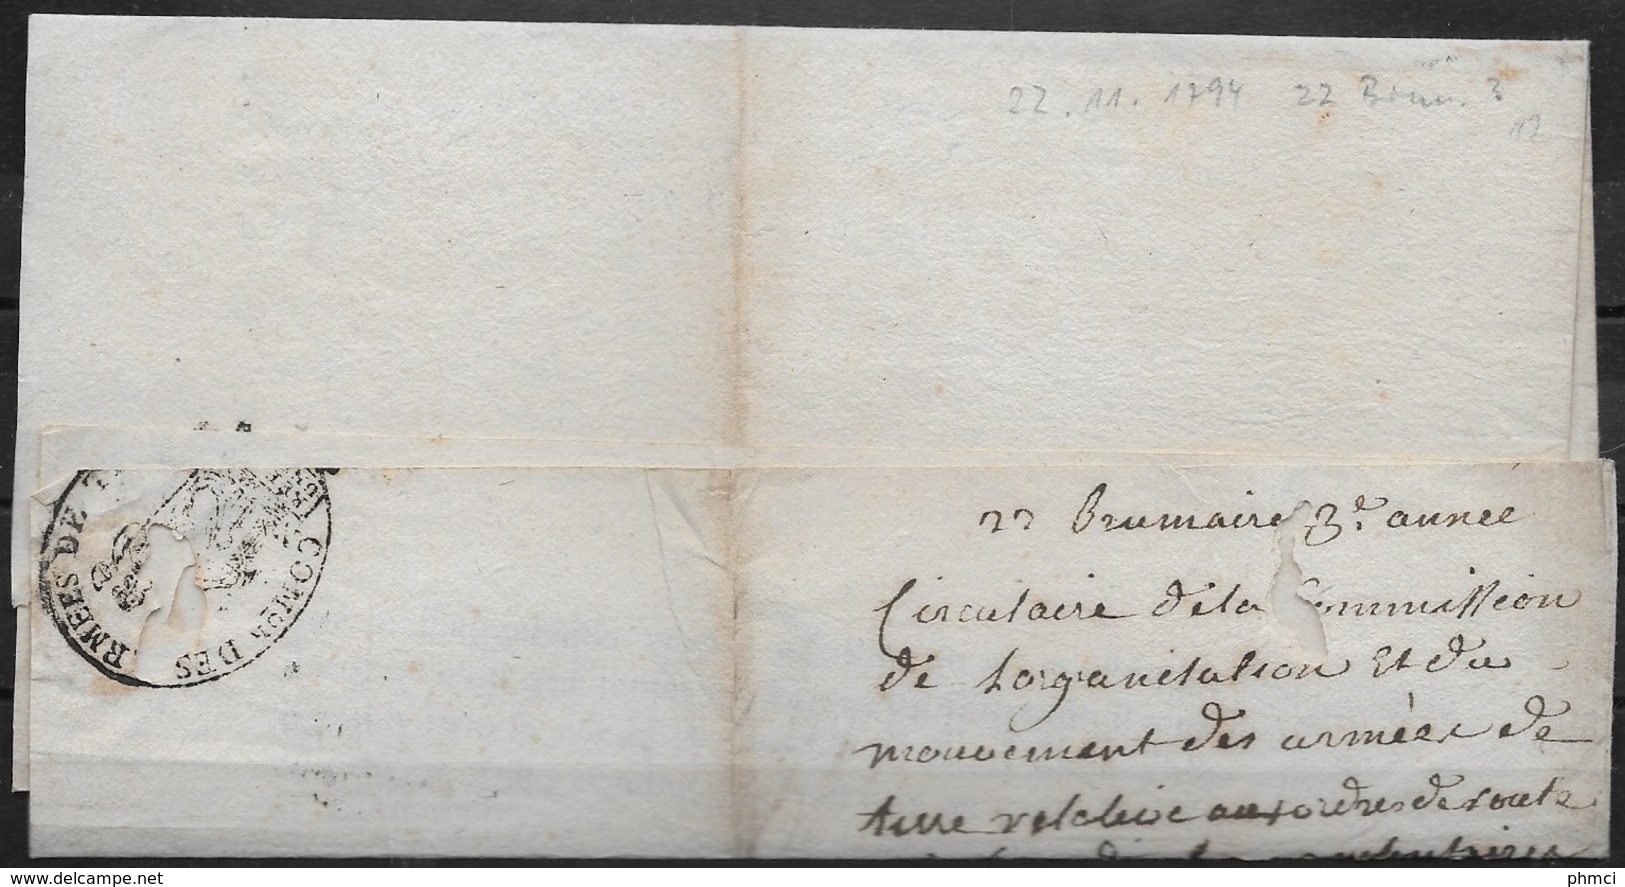 22 . 11 . 1794 22 Brum. 3
12
22 brumaire 3e. année
Circulaire de la Commission
de l'organisation et du
mouvement des armées de
terre relative aux ordres de route
COMon DES
RMEES DE T
phmci